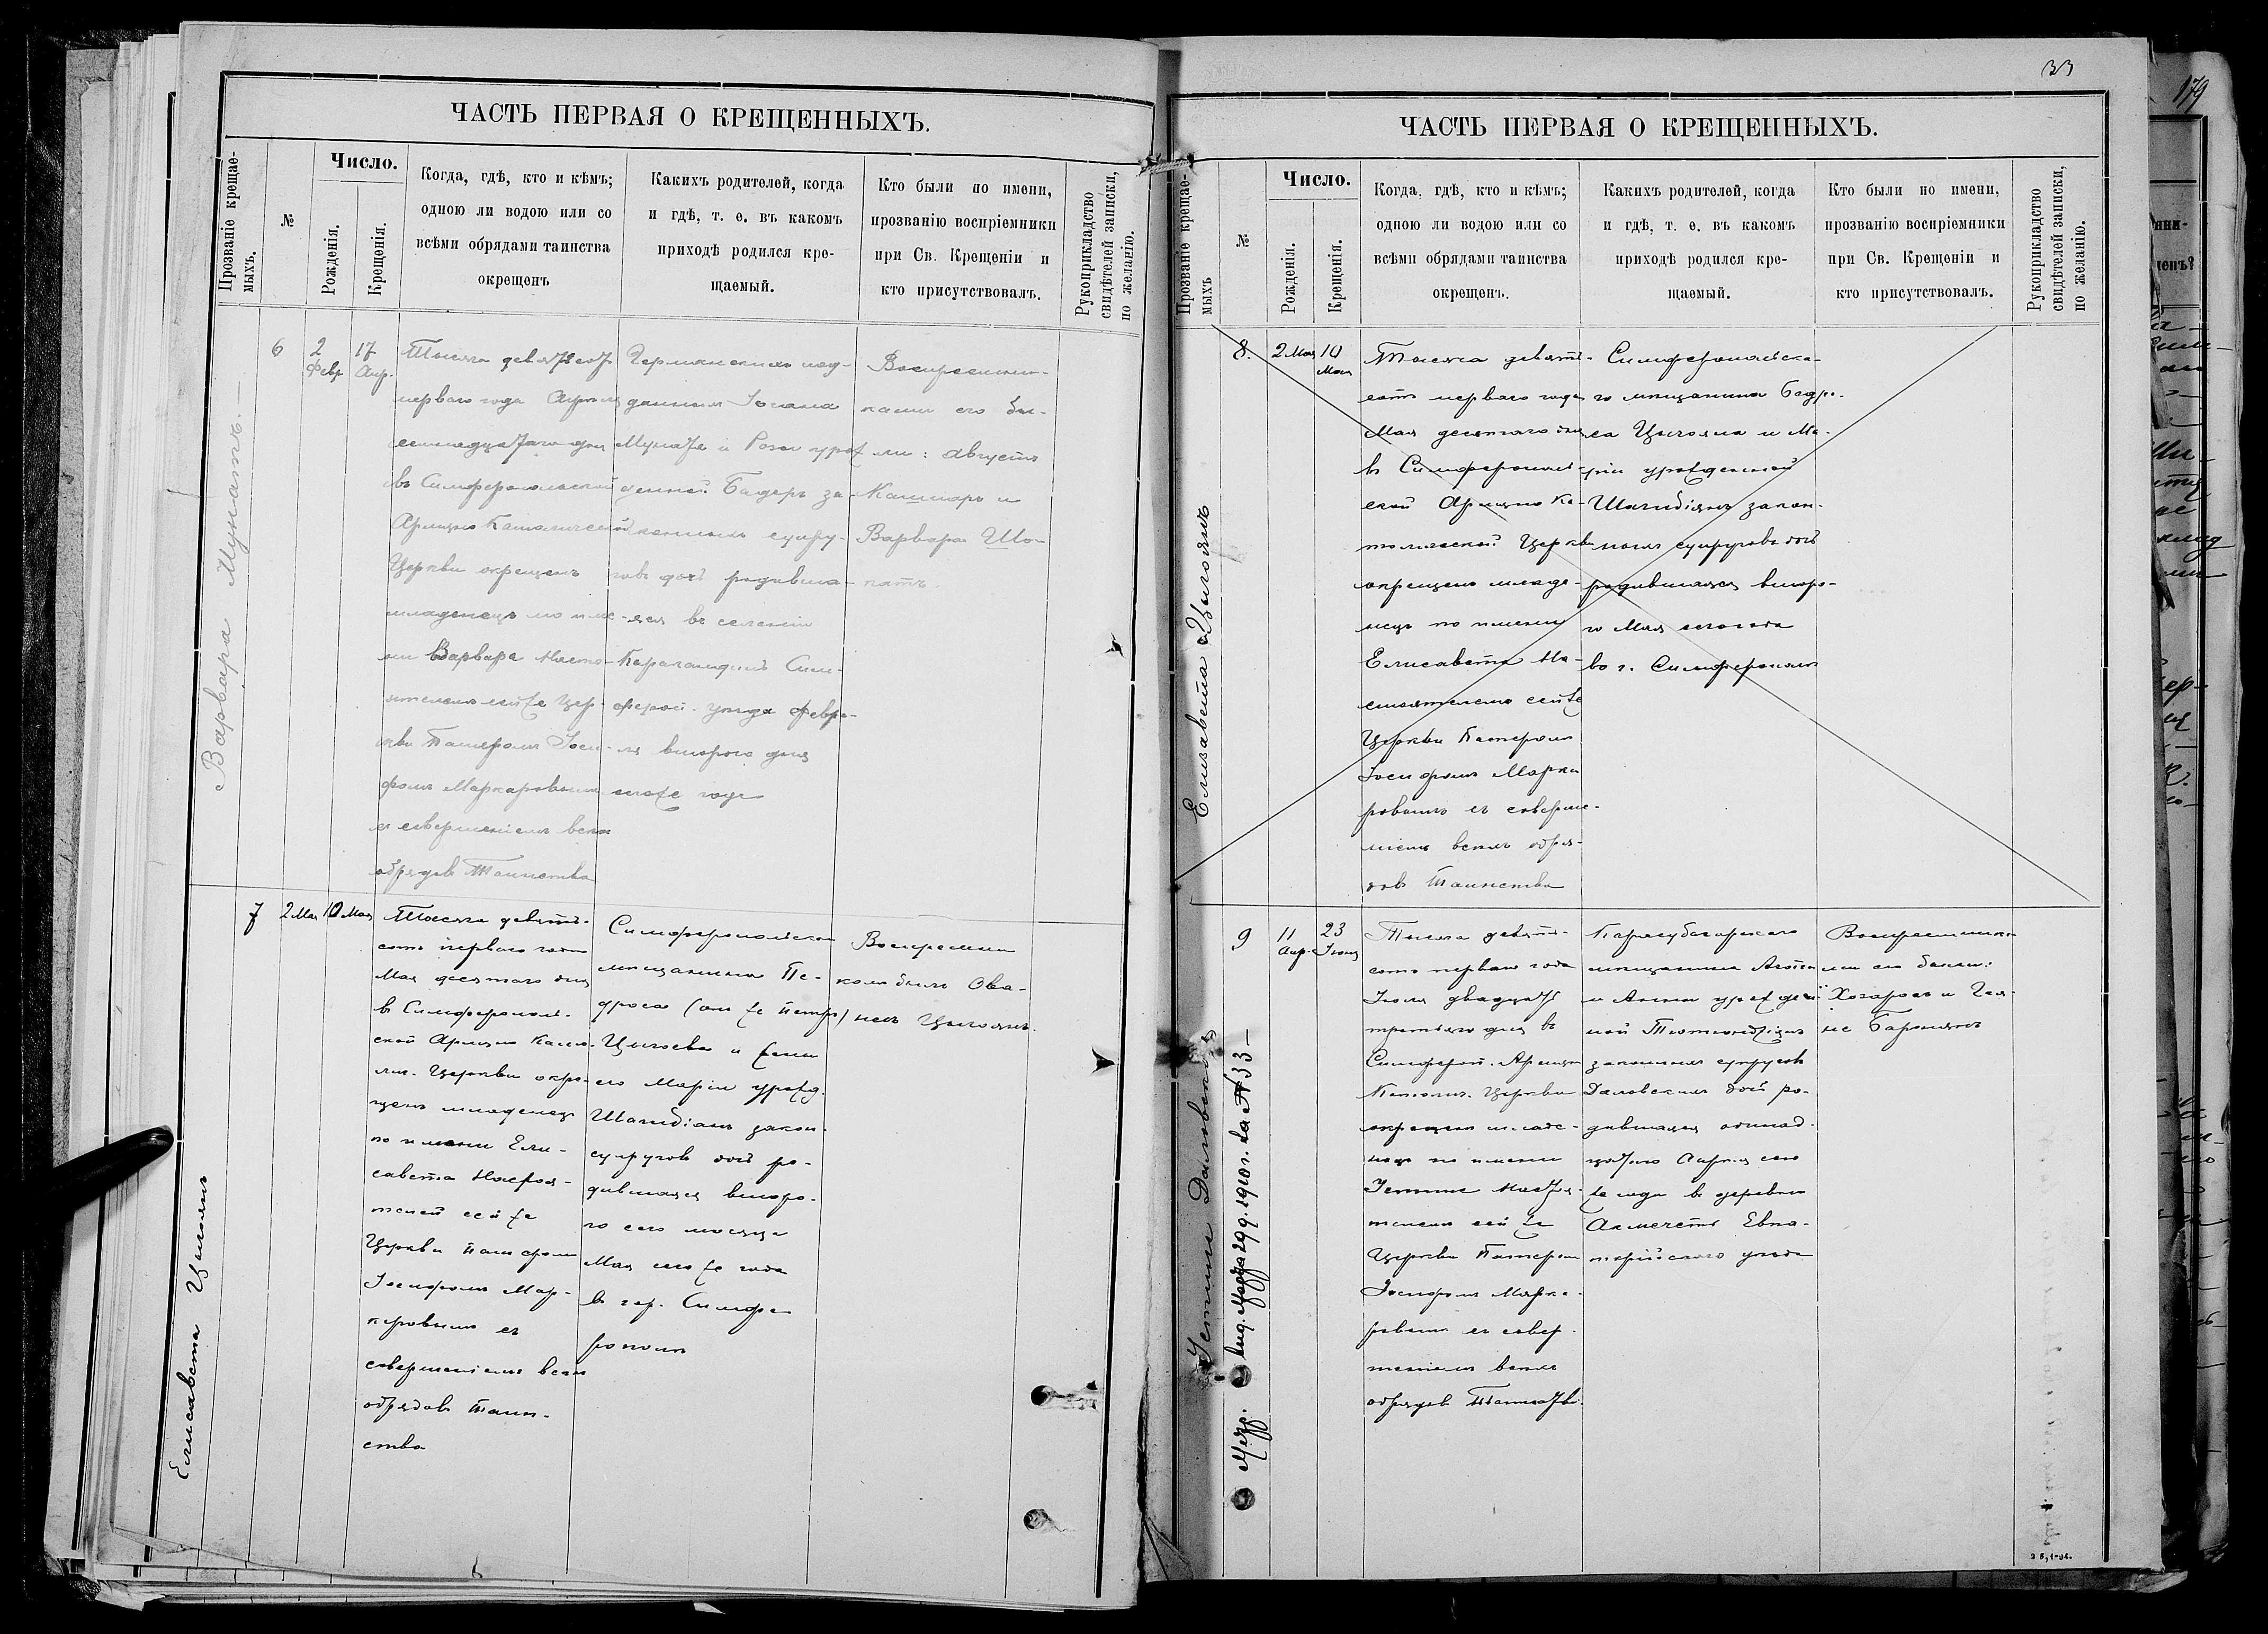 ЧАСТЬ ПЕРВАЯ О КРЕЩЕННЫХЪ.
Прозваніе крещае-
мыхъ.
№
Число.
Рожденія.
Крещенія.
Когда, гдѣ, кто и кѣмъ;
одною ли водою или со
всѣми обрядами таинства
окрещенъ
Какихъ родителей, когда
и гдѣ, т. е. въ какомъ
приходѣ родился кре-
щаемый.
Кто были по имени,
прозванію воспріемники
при Св. Крещеніи и
кто присутствовалъ.
Рукоприкладство
свидѣтелей записки,
по желанію.
Варвара Мунатъ.
6
2
Февр
17
Апр.
Тысяча девятьсот
перваго года Апрѣля
семнадцатаго дня
въ Симферопольской
Армяно Католической
Церкви окрещенъ
младенецъ по име-
ни Варвара Насто-
ятелемъ сей же Цер-
кви Патеромъ Іоси-
фомъ Маркаровымъ
съ совершеніемъ всехъ
обрядовъ Таинства
Германскихъ под-
данныхъ Іогана
Муната и Розы урож
денной Бадеръ за-
конныхъ супру-
говъ дочь родивша-
яся въ селеніи
Симо-
фероп. уѣзда Февра-
ля второго дня
сего же года
Воспріемни-
ками его бы-
ли: Августъ
Кашнаръ и
Варвара
Елисавета Цыгоянъ
7
2 Мая
10 Мая
Тысяча девять-
сотъ перваго года
Мая десятаго дня
въ Симферополь-
ской Армяно Като-
лич. Церкви окре-
щенъ младенецъ
по имени Ели-
савета Настоя-
телемъ сей же
Церкви Патеромъ
Іосифомъ Мар-
каровымъ съ
совершеніемъ всехъ
обрядовъ Таин-
ства
Симферопольскаго
мѣщанина Пе-
дроса (он же Петръ)
Цыгоева и жены
его Маріи урожд.
Шагибіанъ закон.
супруговъ дочь ро-
дившаяся второ-
го сего мѣсяца
Мая сего же года
въ гор. Симфе-
рополѣ
Воспріемни
комъ былъ Ова-
несъ Цыгоянъ.
33
ЧАСТЬ ПЕРВАЯ О КРЕЩЕННЫХЪ.
Прозваніе крещае-
мыхъ
№
Число.
Рожденія.
Крещенія.
Когда, гдѣ, кто и кѣмъ;
одною ли водою или со
всѣми обрядами таинства
окрещенъ.
Какихъ родителей, когда
и гдѣ, т. е. въ какомъ
приходѣ родился кре-
щаемый.
Кто были по имени,
прозванію воспріемники
при Св. Крещеніи и
кто присутствовалъ.
Рукоприкладство
свидѣтелей записки,
по желанію.
Елизавета Цыгоянъ
8.
2 Мая
10
Мая
Тысяча девять-
сотъ перваго года
Мая десятаго дня
въ Симферополь-
ской Армяно Ка-
толической Церкви
окрещенъ младе-
нецъ по имени
Елисавета На-
стоятелемъ сей же
Церкви Патеромъ
Іосифомъ Марка
ровымъ съ соверше-
ніемъ всехъ обря-
довъ Таинства
Симферопольска-
го мѣщанина Бедро-
са Цыгояна и Ма-
ріи урожденной
Шагибіянъ закон-
ныхъ супруговъ дочь
родившаяся второ-
го Мая сего года
въ г. Симферополѣ
9
11
Апр.
23
Іюля
Тысяча девять-
сотъ перваго года
Іюля двадцать
третьяго дня въ
Симфероп. Армяно
Католич. Церкви
окрещенъ младе-
нецъ по имени
Настоя-
телемъ сей же
Церкви Патеромъ
Іосифомъ Марка-
ровымъ съ совер-
шеніемъ всехъ
обрядовъ Таинства.
Карасубазарскаго
мѣщанина
и Анны урожден-
ной
законныхъ супругов
дочь ро-
дившаяся одинад-
цатаго Апрѣля сего
же года въ деревни
Акмечеть Евпа-
торійскаго уѣзда
Воспріемника-
ми его были:
и Гая-
не Баронянъ
выд. 29 д. 1910 г. за № 33 —
179